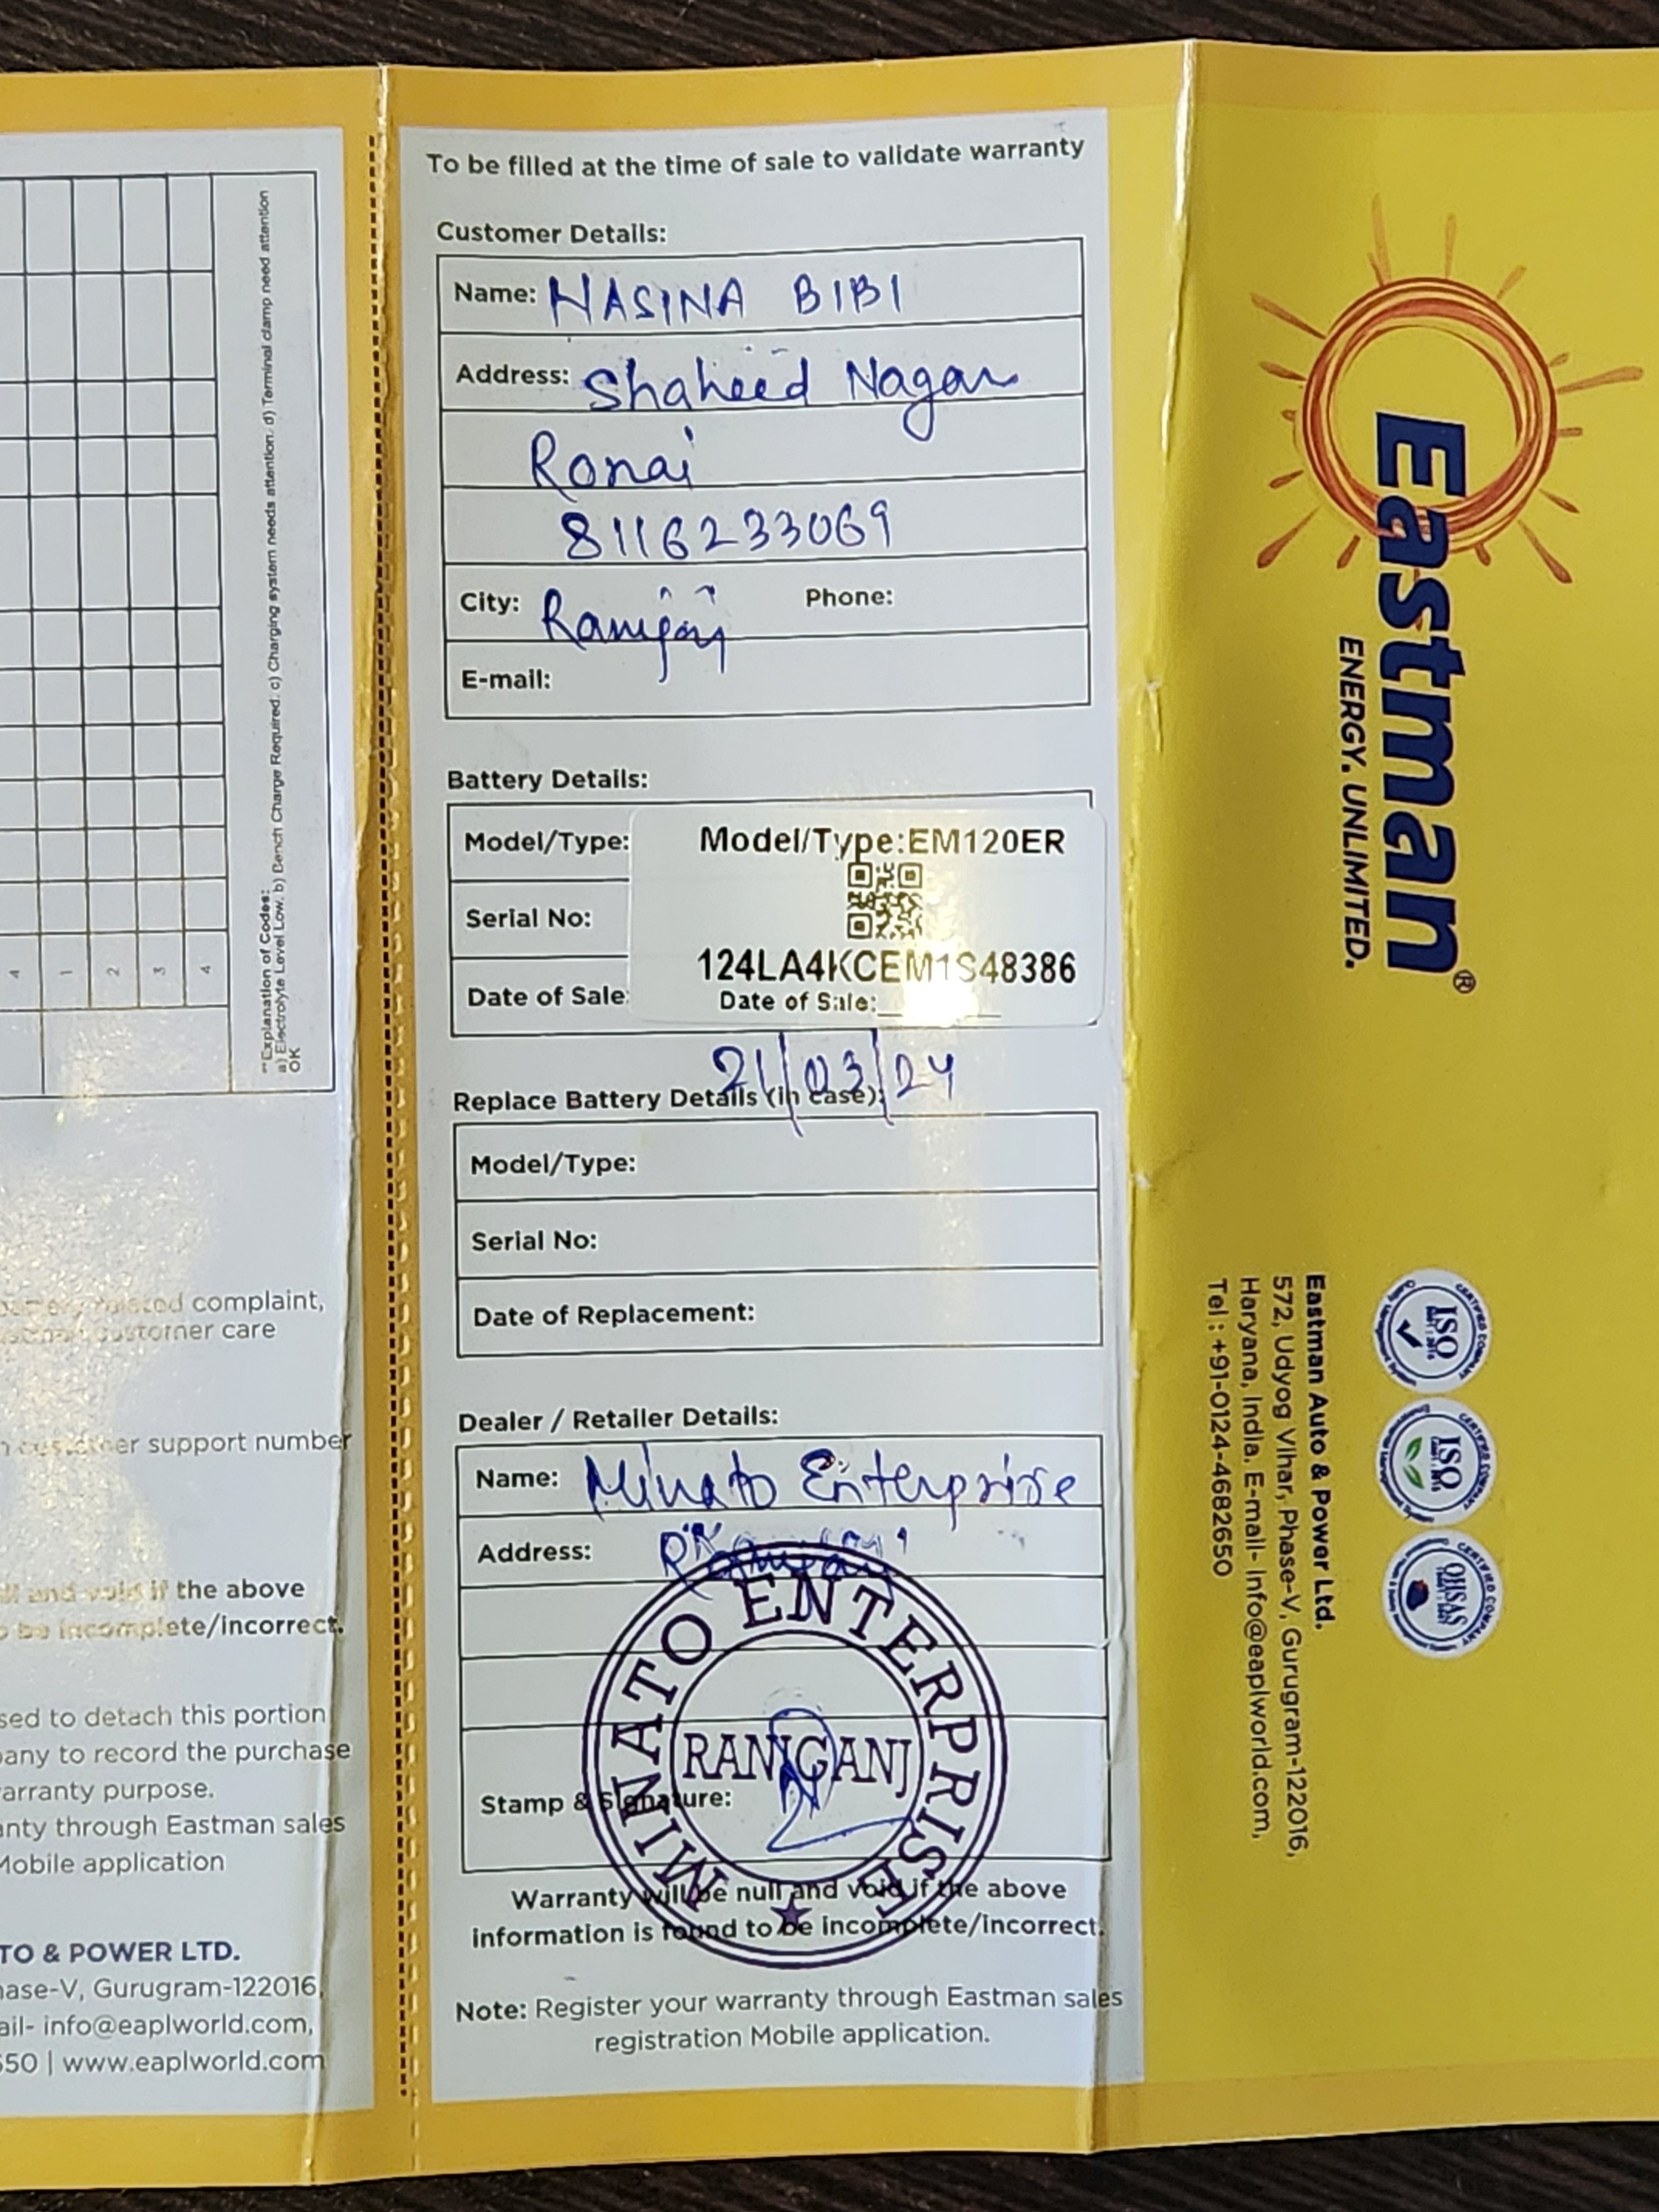 **Explanation of Codes:
a) Electrolyte Level Low. b) Bench Charge Required. c) Charging system needs attention. d) Terminal clamp need attention
OK
4
1
2
3
4
complaint,
customer care
customer support number
null and void if the above
to be incomplete/incorrect.
sed to detach this portion
any to record the purchase
arranty purpose.
nty through Eastman sales
Mobile application
TO & POWER LTD.
hase-V, Gurugram-122016,
ail- info@eaplworld.com,
650 | www.eaplworld.com
To be filled at the time of sale to validate warranty
Customer Details:
Name: HASINA BIBI
Address: Shaheed Nagar
Ronai
8116233069
City: Phone:
E-mail:
Battery Details:
Model/Type: Model/Type:EM120ER
Serial No:
124LA4KCEM1S48386
Date of Sale: Date of Sale:
21/03/24
Replace Battery Details (in case):
Model/Type:
Serial No:
Date of Replacement:
Dealer / Retailer Details:
Name: Minato Enterprise
Address:
MINATO ENTERPRISE
RANIGANJ
Stamp & Signature:
Warranty will be null and void if the above
information is found to be incomplete/incorrect.
Note: Register your warranty through Eastman sales
registration Mobile application.
Eastman®
ENERGY. UNLIMITED.
CERTIFIED COMPANY
ISO
CERTIFIED COMPANY
ISO
CERTIFIED COMPANY
OHSAS
Eastman Auto & Power Ltd.
572, Udyog Vihar, Phase-V, Gurugram-122016,
Haryana, India. E-mail- info@eaplworld.com,
Tel : +91-0124-4682650